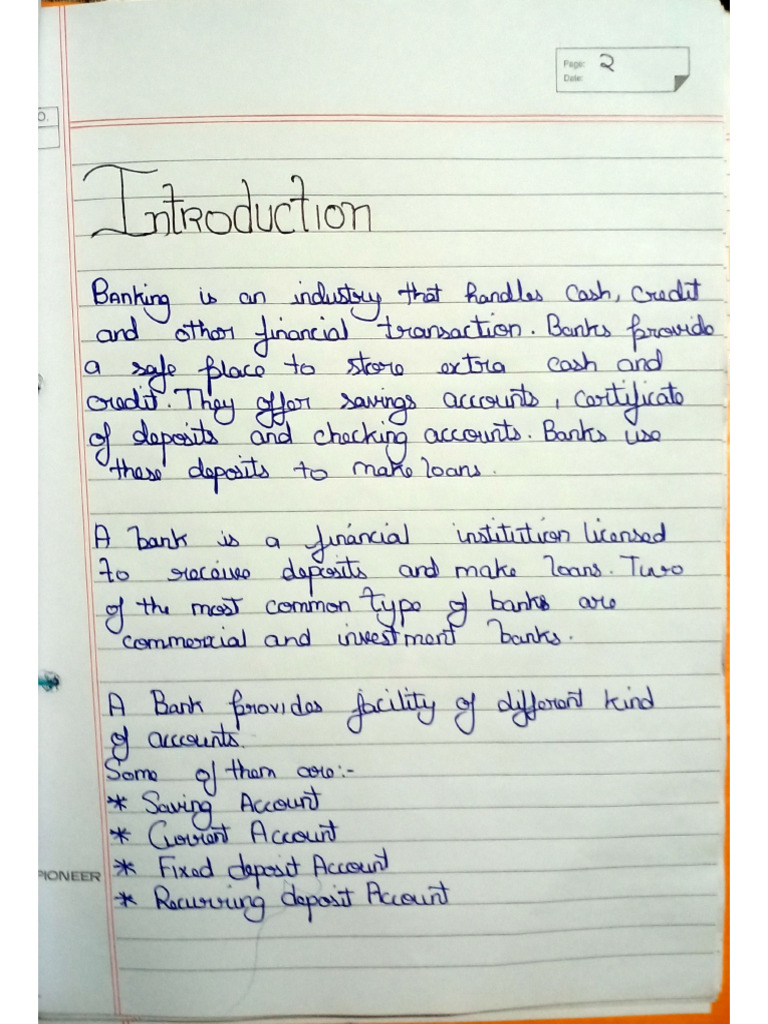 O.
Page: 2
Date:
Introduction
Banking is an industry that handles cash, credit
and other financial transaction. Banks provide
a safe place to store extra cash and
credit. They offer savings accounts, certificate
of deposits and checking accounts. Banks use
these deposits to make loans.
A bank is a financial institution licensed
to receive deposits and make loans. Two
of the most common type of banks are
commercial and investment banks.
A Bank provides facility of different kind
of accounts.
Some of them are:-
* Saving Account
* Current Account
* Fixed deposit Account
PIONEER
* Recurring deposit Account